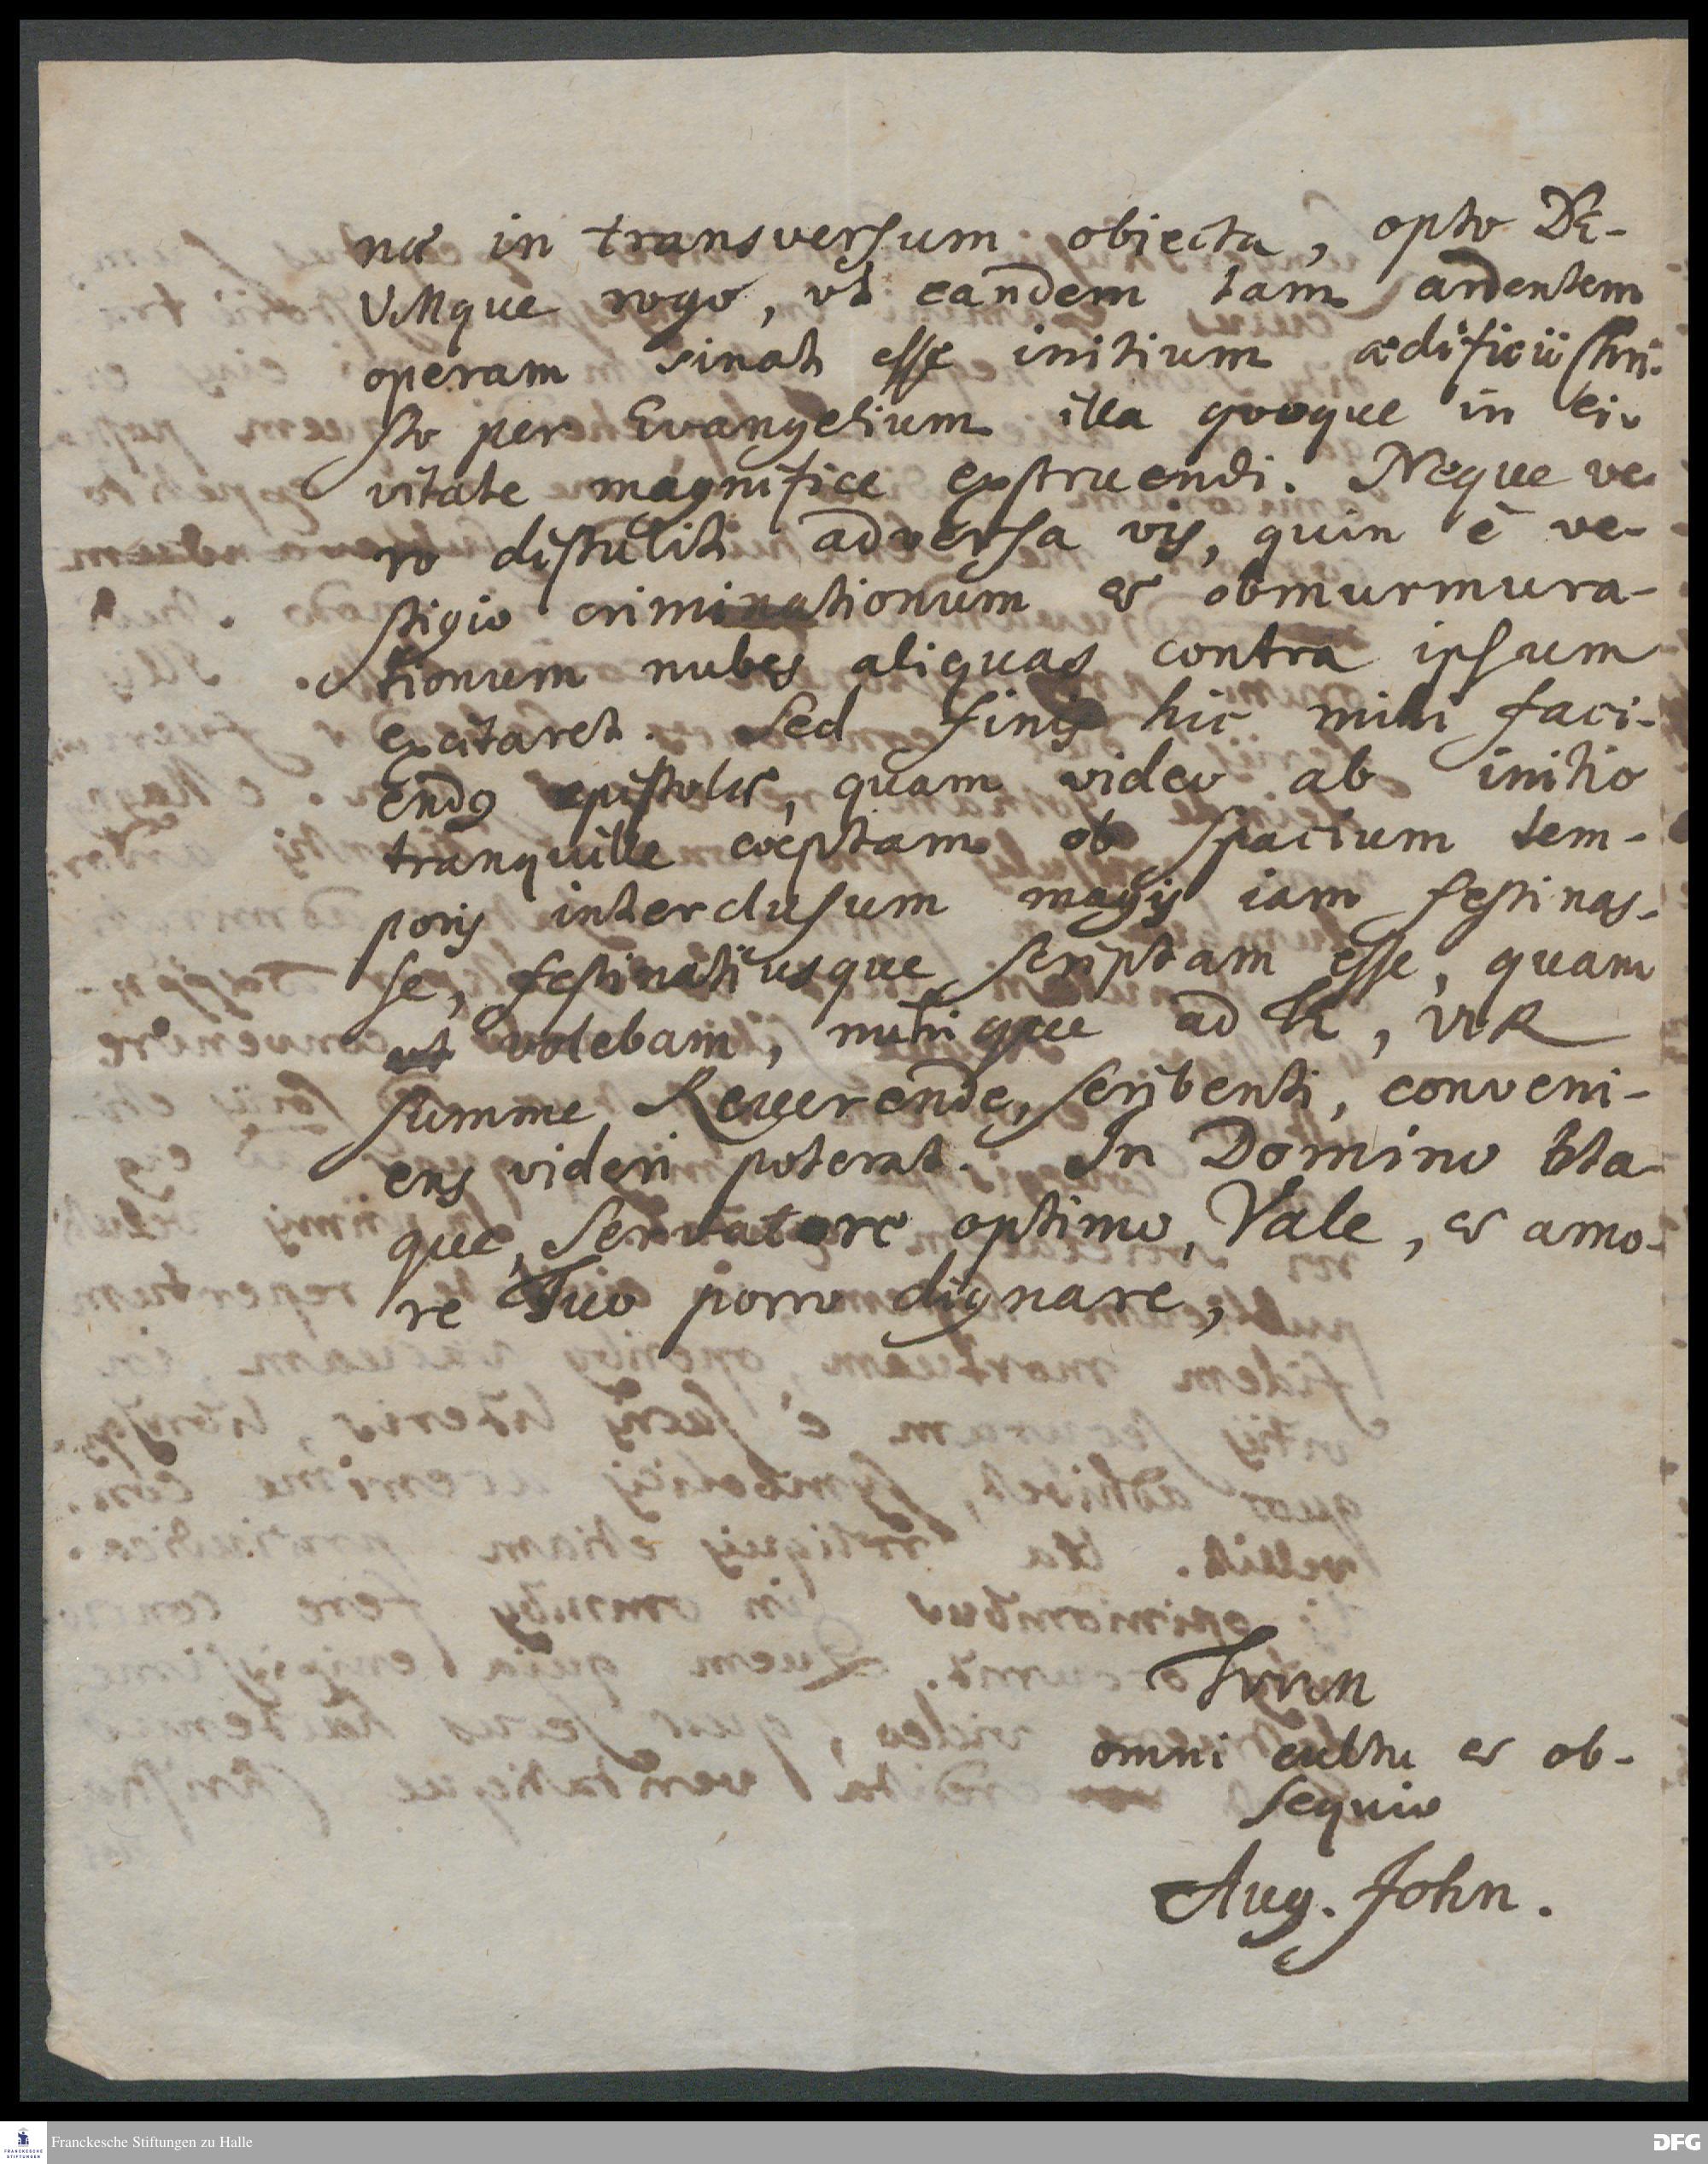 næ in transversum obiecta, opto DE-
UMque rogo, vt eandem tam ardentem
operam sinat esse initium ædificii Chri-
sto per Evangelium illa quoque in ci-
vitate magnifice exstruendi. Neque ve-
ro distulit adversa vis, quin è ve-
stigio criminationum & obmurmura-
tionum nubes aliquas contra ipsum
excitaret. Sed finis hic mihi faci-
endus epistolæ, quam video ab initio
tranquille cœptam ob spacium tem-
poris interclusum magis iam festinas-
se, festinatiusque scriptam esse, quam
vt volebam, mihique ad TE, VIR
summe Reverende, scribenti, conveni-
ens videri poterat. In Domino Ita-
que, Servatore optimo, Vale, & amo-
re Tuo porro dignare,
TVVM
omni cultu & ob-
sequio
Aug. John.
Franckesche Stiftungen zu Halle
DFG
FRANCKESCHE
STIFTUNGEN